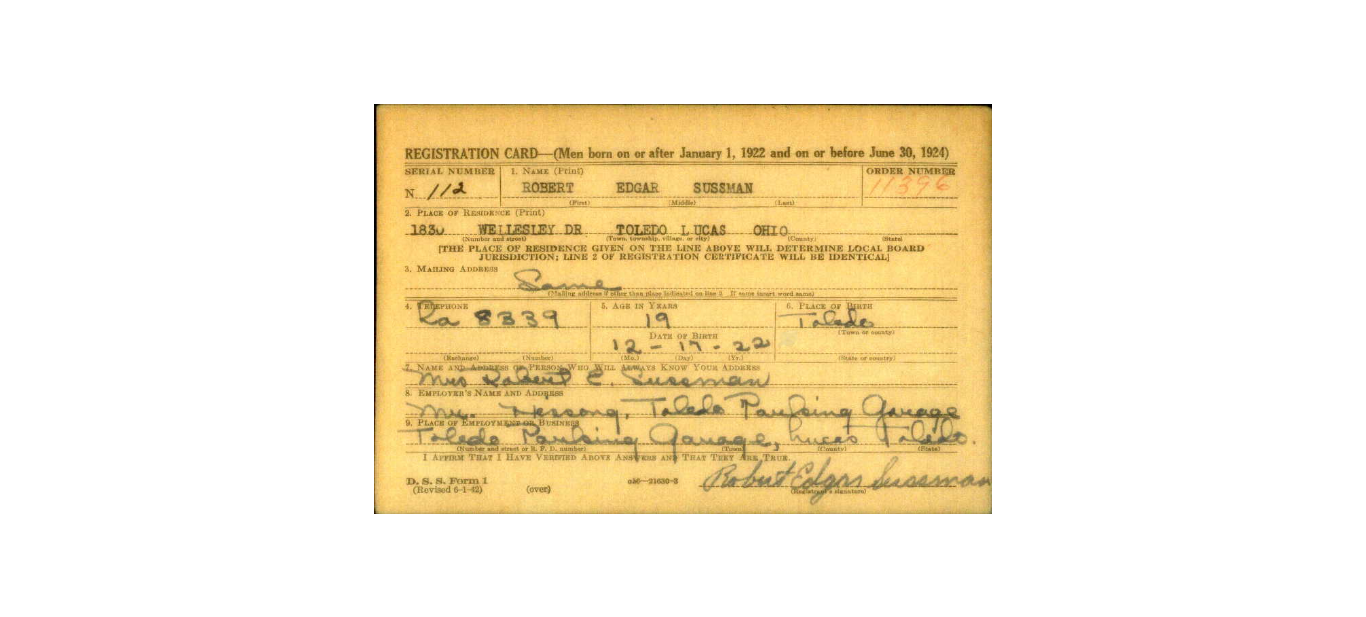 REGISTRATION CARD—(Men born on or after January 1, 1922 and on or before June 30, 1924)
SERIAL NUMBER 1. NAME (Print) ORDER NUMBER
N 112 ROBERT EDGAR SUSSMAN 11396
(First) (Middle) (Last)
2. PLACE OF RESIDENCE (Print)
1830 WELLESLEY DR TOLEDO LUCAS OHIO
(Number and street) (Town, township, village, or city) (County) (State)
[THE PLACE OF RESIDENCE GIVEN ON THE LINE ABOVE WILL DETERMINE LOCAL BOARD
JURISDICTION; LINE 2 OF REGISTRATION CERTIFICATE WILL BE IDENTICAL]
3. MAILING ADDRESS
Same
(Mailing address if other than place indicated on line 2. If same insert word same)
4. TELEPHONE 5. AGE IN YEARS 6. PLACE OF BIRTH
Ra 8339 19 Toledo
(Town or county)
DATE OF BIRTH
12-17-22
(Exchange) (Number) (Mo.) (Day) (Yr.) (State or country)
7. NAME AND ADDRESS OF PERSON WHO WILL ALWAYS KNOW YOUR ADDRESS
Mrs Robert E. Sussman
8. EMPLOYER'S NAME AND ADDRESS
Mr. Hissong, Toledo Parking Garage
9. PLACE OF EMPLOYMENT OR BUSINESS
Toledo Parking Garage, Lucas Toledo.
(Number and street or R. F. D. number) (Town) (County) (State)
I AFFIRM THAT I HAVE VERIFIED ABOVE ANSWERS AND THAT THEY ARE TRUE.
D. S. S. Form 1
(Revised 6-1-42) (over) 16—21630-2 Robert Edgar Sussman
(Registrant's signature)